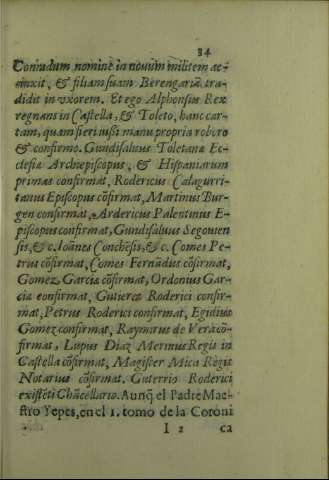 34
Conradum nomine in nouum militem ac-
cinxit, & filiam suam Berengariã tra-
didit in vxorem. Et ego Alphonsus Rex
regnans in Castella, & Toleto, hanc car-
tam, quam fieri iussi manu propria roboro
& confirmo. Gundisaluus Toletanæ Ec-
clesiæ Archiepiscopus, & Hispaniarum
primas confirmat, Rodericus Calagurri-
tanus Episcopus cõfirmat, Martinus Bur-
gen confirmat, Ardericus Palentinus E-
piscopus confirmat, Gundisaluus Segouien
sis, & c. Ioãnes Conchẽsis, & c. Comes Pe-
trus cõfirmat, Comes Fernãdus cõfirmat,
Gomez, Garcia cõfirmat, Ordonius Gar-
cia confirmat, Gutierez Roderici confir-
mat, Petrus Roderici confirmat, Egidius
Gomez confirmat, Raymũus de Vera cõ-
firmat, Lupus Diaz Merinus Regis in
Castella cõfirmat, Magister Mica Regis
Notarius cõfirmat. Guterrio Roderici
existẽti Chãcellario. Aunq̃ el Padre Mae-
stro Yepes, en el 1. tomo de la Coroni
I 2 ca